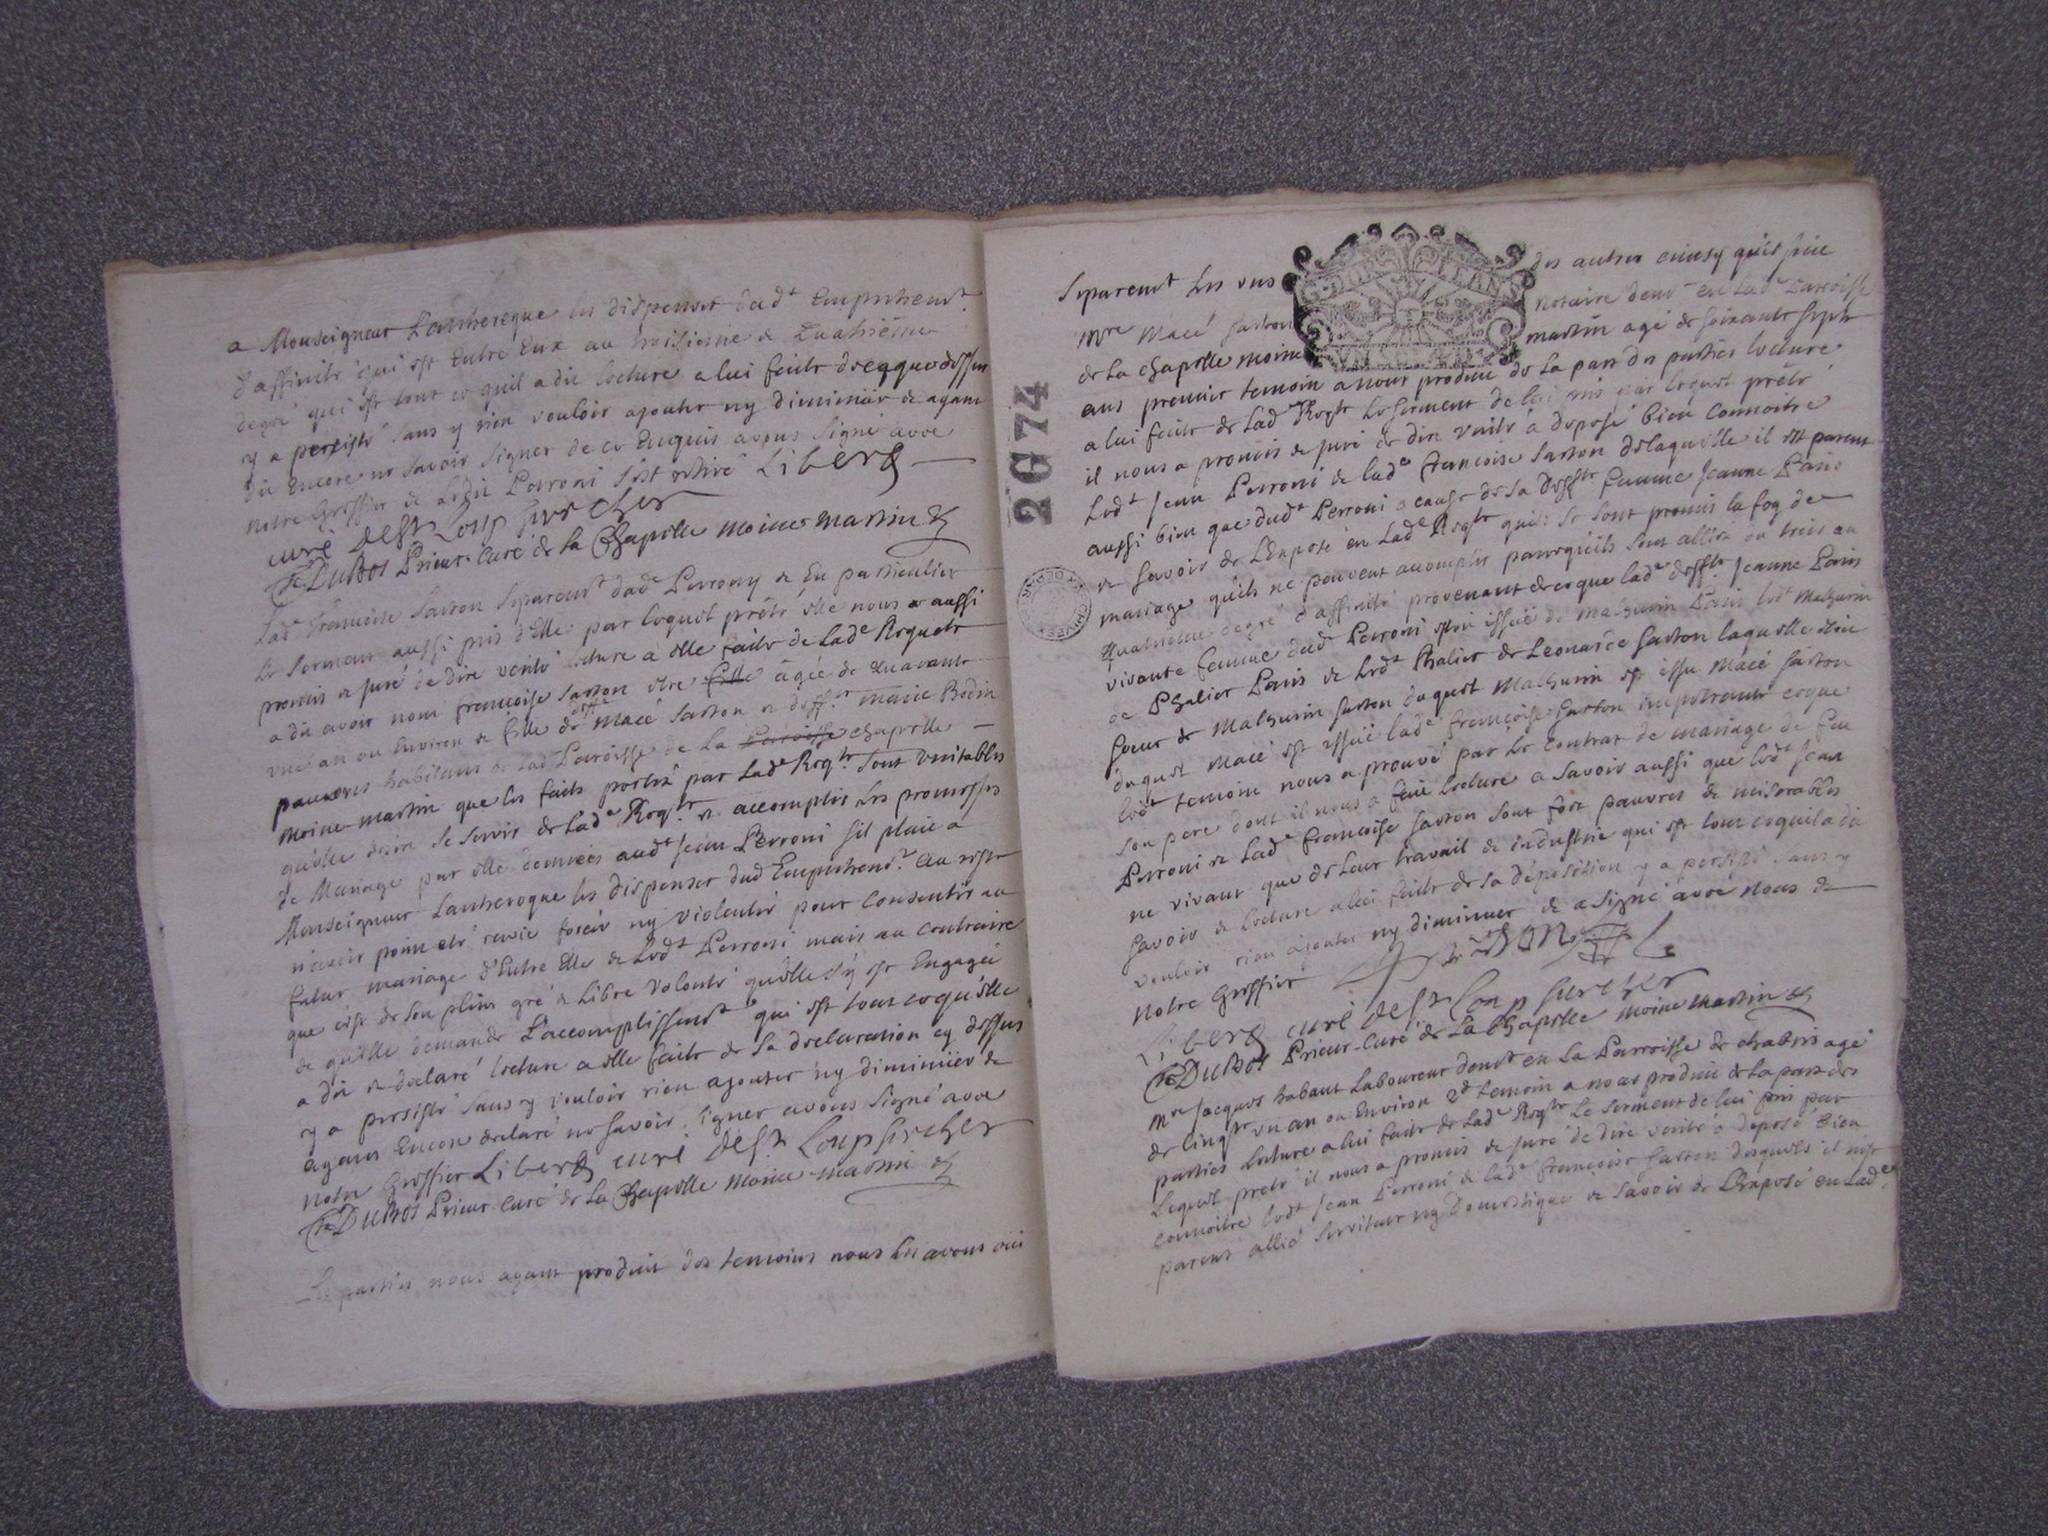 a Monseigneur L'archeveque les dispenser dud.t Empechem.t
d'affinité qui est entre Eux au troisieme & quatrieme
degré qui est tout ce quil a dit lecture a lui faite de ce que dessus
y a persisté sans y rien vouloir ajouter ny diminuer & ayant
dit encore ne savoir signer de ce Enquis avons signé avec
notre Greffier & ledit Perroni s'est retiré Liberg
curé de St Loup sur cher
fr DuBos Prieur-Curé de la Chapelle moine martin
Lad.e francoise Gaston separem.t dud.t Perrony & En particulier
le serment aussi pris d'Elle par lequel prêté elle nous a aussi
promis & juré de dire verité lecture a elle faite de lad.e Requete
a dit avoir nom francoise Gaston etre fille agée de quarante
un an ou environ & fille de deff.t Macé Gaston & deff.te marie Bodin
pauvres habitans de lad.e Paroisse de la Paroisse chapelle
moine-martin que les faits portés par lad.e Reqte. sont veritables
qu'elle desire se servir de lad.e Reqte. & accomplir les promesses
de Mariage par elle données aud.t Jean Perroni s'il plait a
Monseigneur L'archeveque les dispenser dud Empechem.t au reste
n'avoir point eté ravie forcée ny violentée pour consentir au
futur mariage d'Entre Elle & led.t Perroni mais au contraire
que c'est de son plein gré & libre volonté qu'elle s'y est Engagée
& qu'elle demande L'accomplissem.t qui est tout ce qu'elle
a dit & declaré lecture a elle faite de sa declaration cy dessus
y a persisté sans y vouloir rien ajouter ny diminuer &
ayant Encore declaré ne savoir signer avons signé avec
notre Greffier Liberg curé de St Loup sur cher
fr DuBos Prieur curé de La Chapelle Moine-martin
Les parties nous ayant produit des temoins nous les avons oui
2674
separem.t les uns des autres ainsy quil suit
M.re Macé Gaston notaire dem.t en lad.e Paroisse
de La chapelle moine martin agé de soixante sept
ans premier temoin a nous produit de la part des parties lecture
a lui faite de lad.e Reqte le serment de lui pris par lequel prêté
il nous a promis & juré de dire verité a deposé bien connoitre
led.t Jean Perroni & lad.e francoise Gaston de laquelle il est parent
aussi bien que dud.t Perroni a cause de sa deffte femme Jeanne Paris
& savoir de L'Exposé en lad.e Reqte quils se sont promis la foy de
mariage qu'ils ne peuvent accomplir parcequils sont alliés du trois au
quatrieme degré d'affinité provenant de ce que lad.e deffte Jeanne Paris
vivante femme dud.t Perroni etoit issüe de Mathurin Paris led.t Mathurin
de Phalier Paris & led.t Phalier de Leonarde Gaston laquelle etoit
soeur de Mathurin Gaston duquel Mathurin est issu Macé Gaston
duquel Macé est issüe lad.e francoise Gaston impetrante ce que
led.t temoin nous a prouvé par le contrat de mariage de feu
son pere dont il nous a fait lecture a savoir aussi que led.t Jean
Perroni & lad.e francoise Gaston sont fort pauvres & miserables
ne vivant que de leur travail & industrie qui est tout ce quil a dit
savoir & lecture a lui faite de sa déposition y a persisté sans y
vouloir rien ajouter ny diminuer & a signé avec nous &
notre Greffier
Liberg curé de St Loup sur cher
fr DuBos Prieur-Curé de La Chapelle moine martin
M.re Jacques habaut Laboureur dem.t en la Parroisse de chabris agé
de cinqte un an ou Environ 2.d temoin a nous produit de la part des
parties lecture a lui faite de lad.e Reqte le serment de lui pris par
lequel prêté il nous a promis & juré de dire verité a deposé bien
connoitre led.t Jean Perroni & lad.e francoise Gaston desquels il n'est
parent allié serviteur ny domestique & savoir de L'Exposé en lad.e